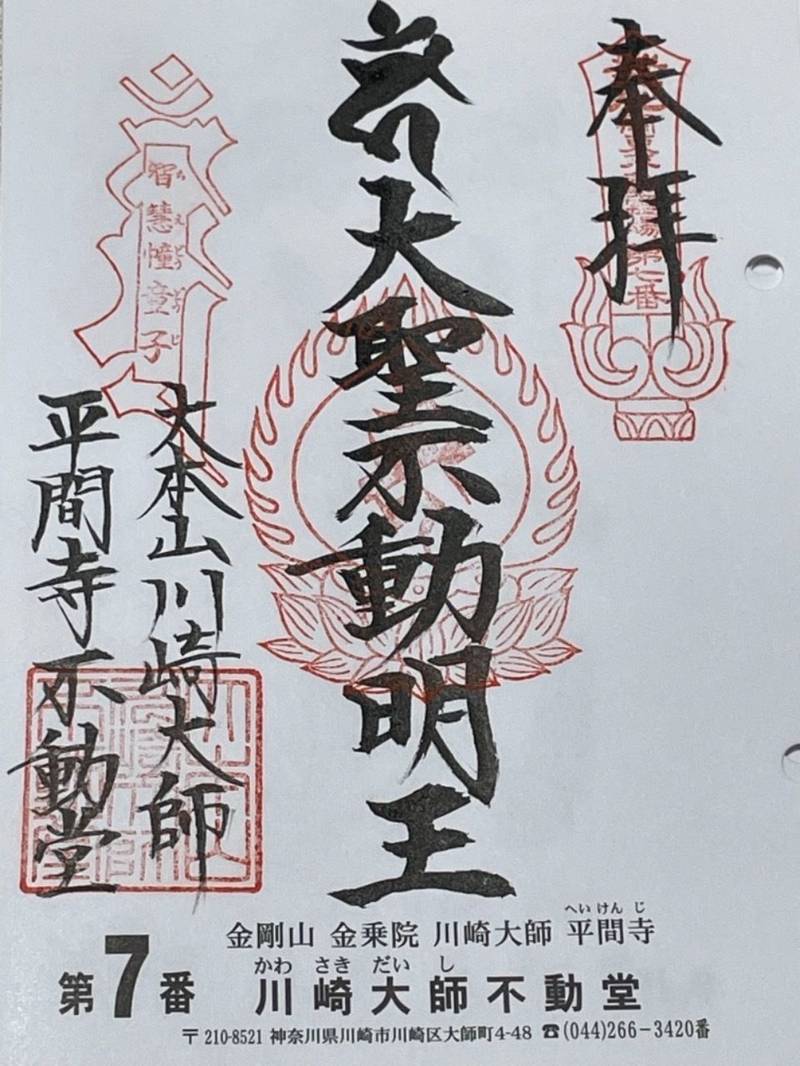 奉拝
大聖不動明王
智慧幢童子
ちえどうどうじ
大本山川崎大師
平間寺不動堂
へいけんじ
金剛山 金乗院 川崎大師 平間寺
かわさきだいし
第7番 川崎大師不動堂
〒210-8521 神奈川県川崎市川崎区大師町4-48 ☎(044)266-3420番